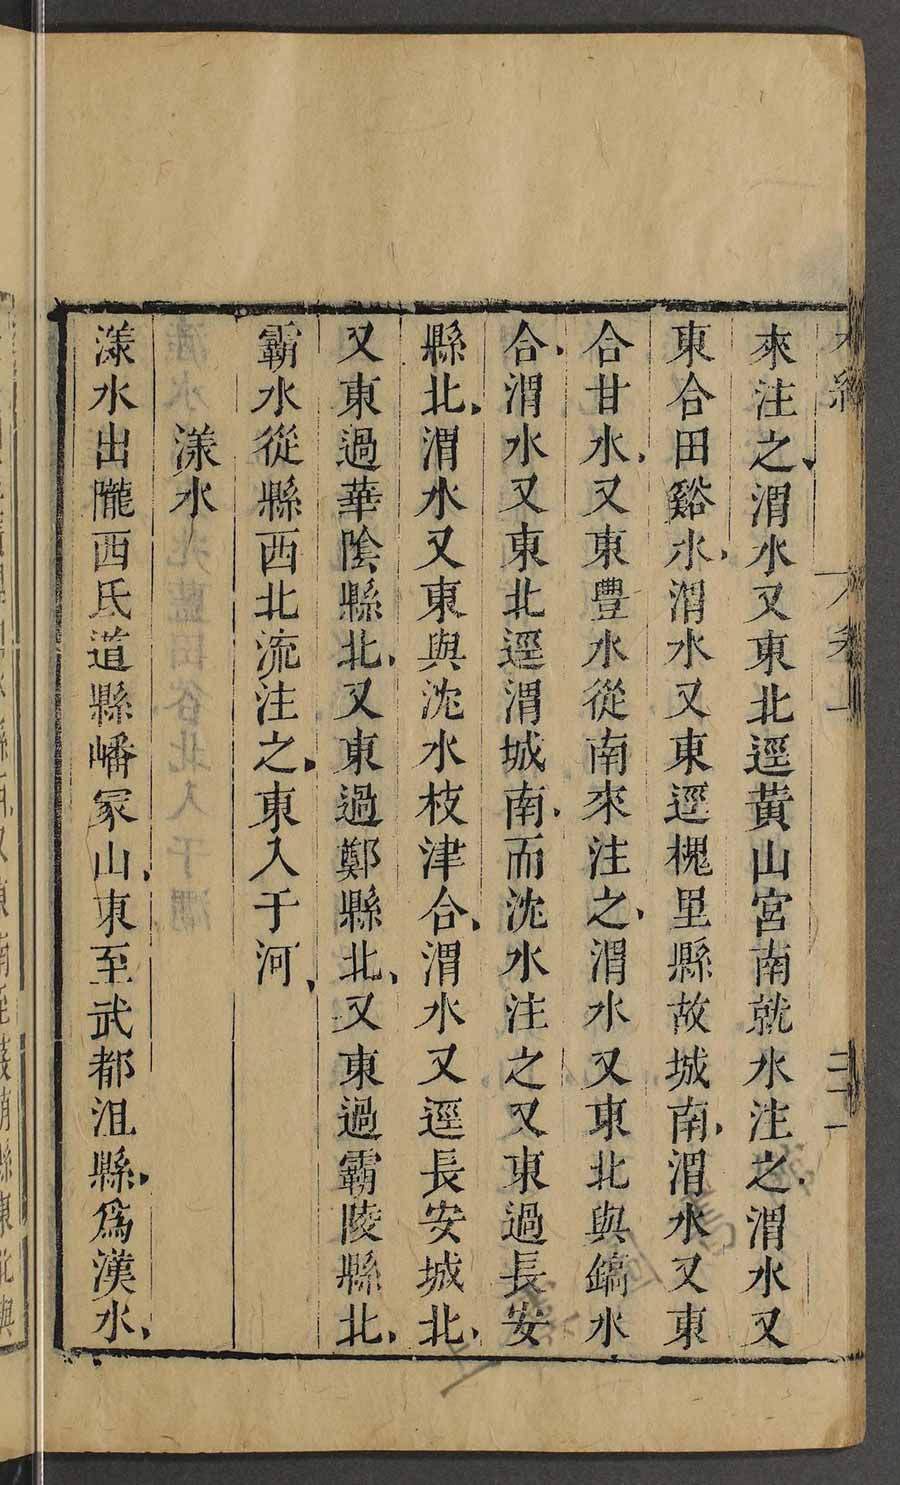 水經 卷上 二十一
來注之、渭水又東北逕黃山宮南就水注之、渭水又
東合田谿水、渭水又東逕槐里縣故城南、渭水又東
合甘水、又東豐水從南來注之、渭水又東北與鎬水
合、渭水又東北逕渭城南、而沈水注之又東過長安
縣北、渭水又東與沈水枝津合、渭水又逕長安城北、
又東過華陰縣北、又東過鄭縣北、又東過霸陵縣北、
霸水從縣西北流注之、東入于河、
漾水
漾水出隴西氐道縣嶓冢山、東至武都沮縣、爲漢水、